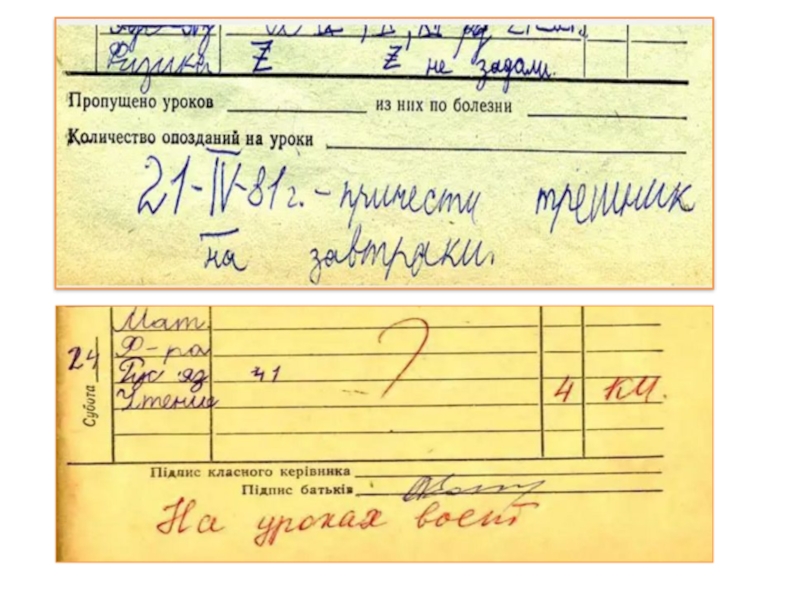 Физика Z Z не задали.
Пропущено уроков из них по болезни
Количество опозданий на уроки
21-IV-81г. - принести трешник
на завтраки.
24
Субота
Мат.
Ф-ра
Рус яз 41
Чтение 4
Підпис класного керівника
Підпис батьків
На уроках воет